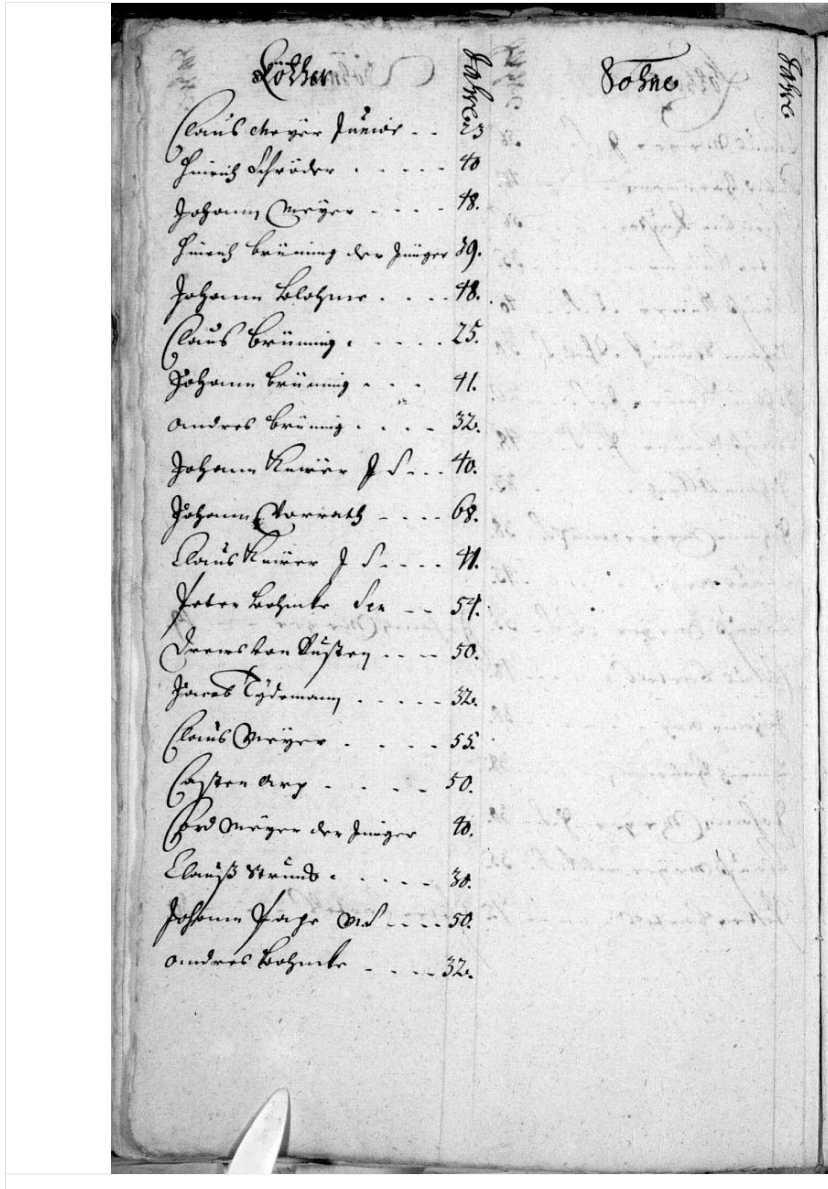 Köther Jahre Söhne Jahre
Claus Meÿer Junior . . 23
Hinrich Schröder . . . . . 40
Johann Meÿer . . . . 48.
Hinrich Brüning der Jünger 39.
Johann Blohme . . . . 48.
Claus Brüning . . . . . 25.
Johann Brüning . . . 41.
Andres Brüning . . . . 32.
Johann J S . . . 40.
Johann Vorrath - . . . 68.
Claus J S . . . . 41.
Peter Bohmke Sen - - 54.
Drewes von . . . . 50.
Jacob Tÿdemann . . . . . 32.
Claus Meÿer . . . . 55.
Casten Arp . . . . . 50.
Cord Meÿer der Jünger 40.
Clauß Strunß . . . . . . 30.
Johann Pape . . . . 50.
Andres Bohmke . . . . 32.